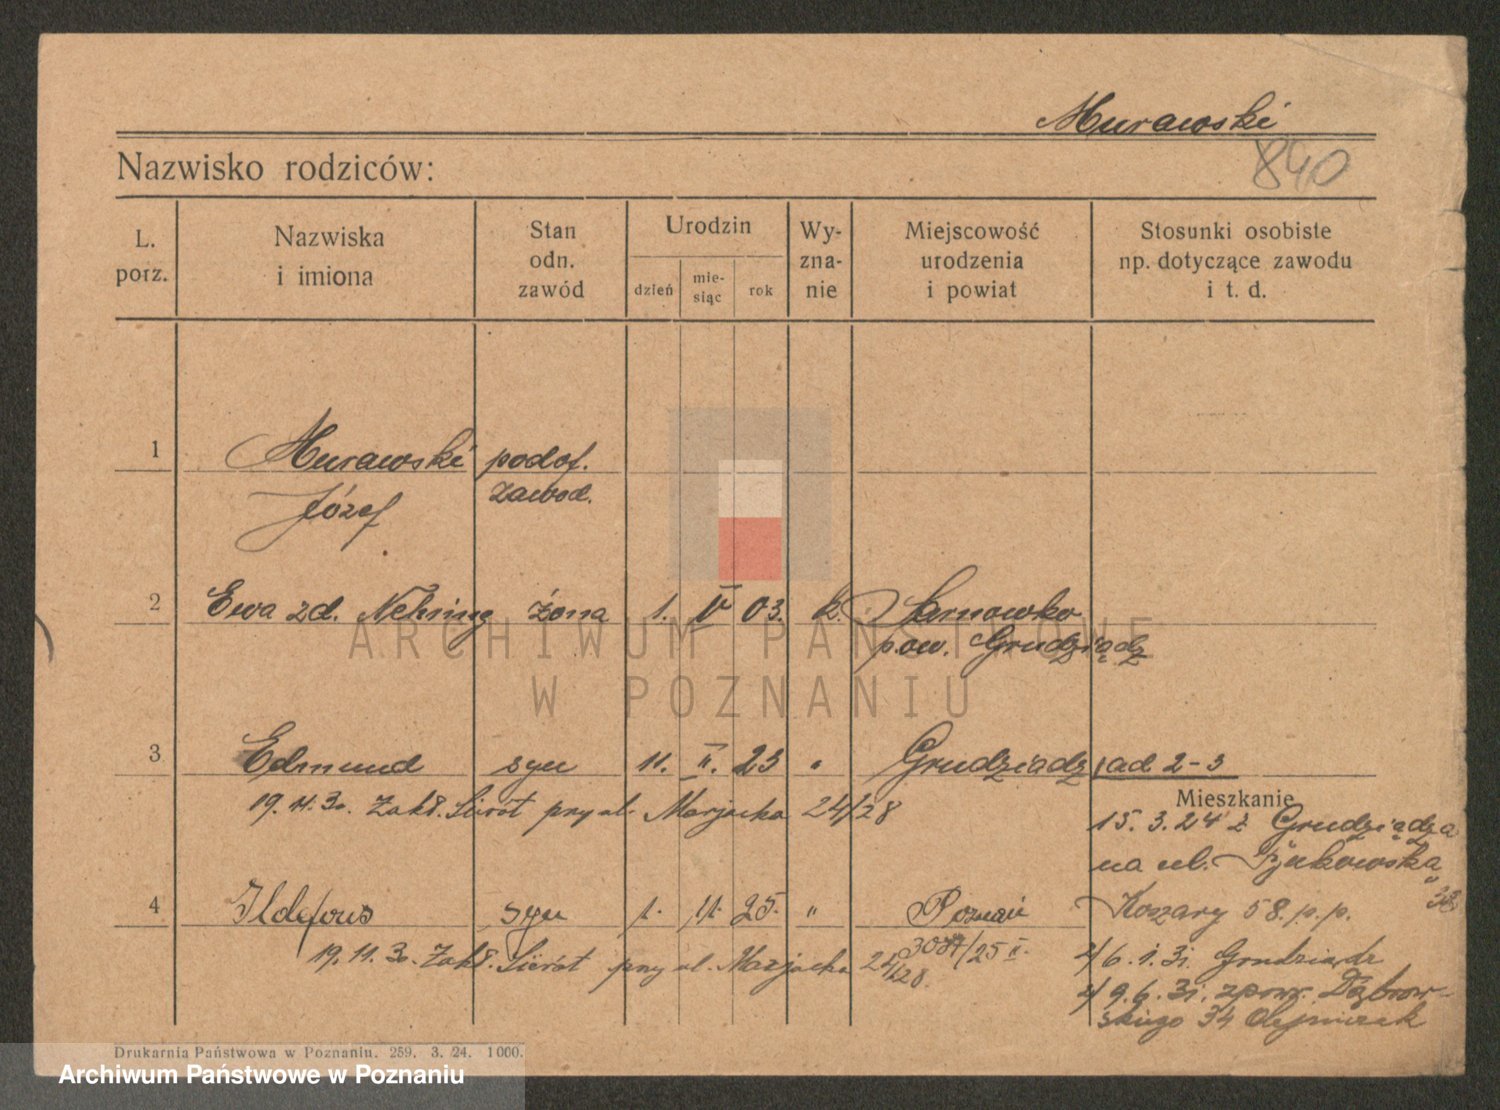 Murawski
Nazwisko rodziców:
840
L. porz.
Nazwiska i imiona
Stan odn. zawód
Urodzin
dzień
mie-siąc
rok
Wy-zna-nie
Miejscowość urodzenia i powiat
Stosunki osobiste np. dotyczące zawodu i t. d.
1 Murawski podof.
Józef zawod.
2 Ewa zd. Nehring żona 1. V 03. k. Sarnowko
pow. Grudziądz
ARCHIWUM PAŃSTWOWE
W POZNANIU
3 Edmund syn 11. II. 23 " Grudziądz ad 2-3
19.11.30. Zakł. Sierót przy ul. Marjacka 24/28
Mieszkanie
15. 3. 24 z Grudziądza
na ul. Bukowska
4 Ildefons syn 1. 11. 25. " Poznań
Koszary 58. p. p.
19.11.30. Zakł. Sierót przy ul. Marjacka 24/28.
/25 II.
6.1.31. Grudziądz
9.6.31. zpow. Dąbrow-
skiego 34 Olejniczak
Drukarnia Państwowa w Poznaniu. 259. 3. 24. 1000.
Archiwum Państwowe w Poznaniu